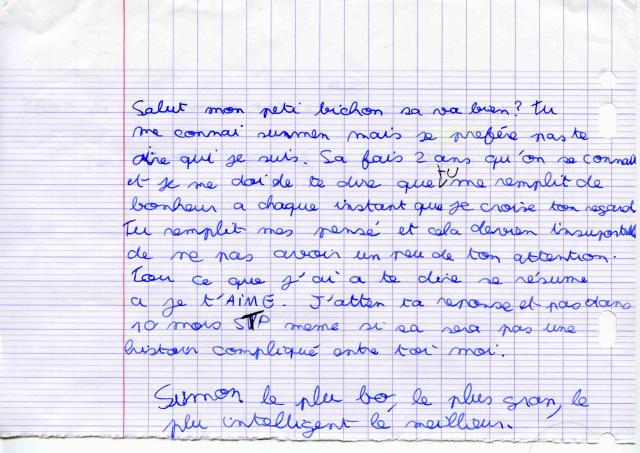 Salut mon peti bichon sa va bien? Tu
me connai surmen mais je prefére pas te
dire qui je suis. Sa fais 2 ans qu'on se connait
et je me doi de te dire que tu me remplit de
bonheur a chaque instant que je croise ton regard
Tu remplit mes pensé et cela devien insuportable
de ne pas avoir un peu de ton attention.
Tou ce que j'ai a te dire se résume
a je t'AIME. J'atten ta reponse et pas dans
10 mois STP meme si sa sera pas une
histoir compliqué entre toi moi.
Simon le plu bo, le plus gran, le
plu intelligent le meilleur.